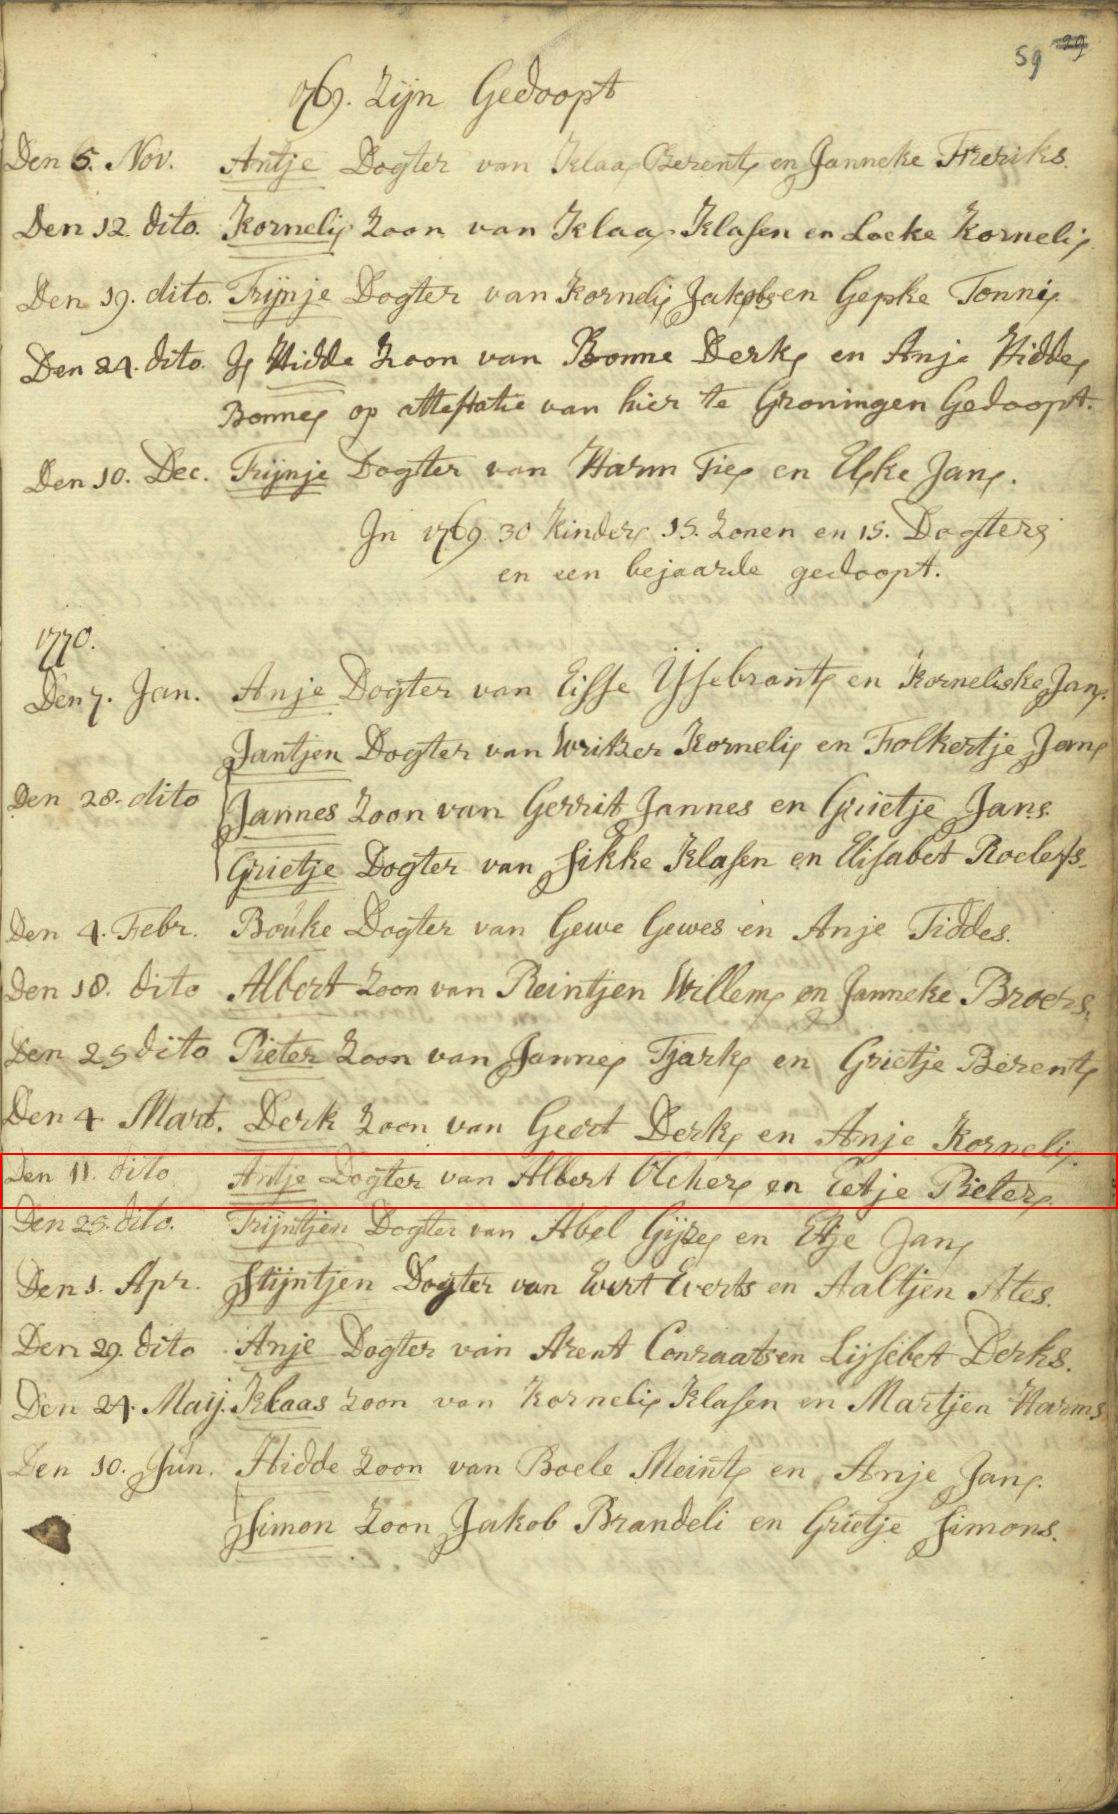 59 29
1769. Zijn Gedoopt
Den 5. Nov. Antje Dogter van Klaas Berents en Janneke Freriks.
Den 12. dito. Kornelis Zoon van Klaas Klasen en Locke Kornelis
Den 19. dito. Trijnje Dogter van Kornelis Jakobs en Gepke Tonnis
Den 24. dito. Is Hidde Zoon van Bonne Derks en Anje Hiddes
Bonnes op attestatie van hier te Groningen Gedoopt.
Den 10. Dec. Trijnje Dogter van Harm Ties en Elske Jans.
In 1769 30 Kinders 15. Zonen en 15. Dogters
en een bejaarde gedoopt.
1770.
Den 7. Jan. Anje Dogter van Eisse IJsebrants en Korneliske Jans.
Jantjen Dogter van Writser Kornelis en Folkertje Jans
Den 28. dito Jannes Zoon van Gerrit Jannes en Grietje Jans.
Grietje Dogter van Sikke Klasen en Elisabet Roelefs.
Den 4. Febr. Bouke Dogter van Gewe Gewes en Anje Tiddes.
Den 18. dito Albert Zoon van Reintjen Willems en Janneke Broers.
Den 25 dito Pieter Zoon van Jannes Tjarks en Grietje Berents
Den 4 Mart. Derk Zoon van Geert Derks en Anje Kornelis.
Den 11. dito Antje Dogter van Albert Ockers en Eetje Pieters.
Den 25. dito. Trijntjen Dogter van Abel Gijzes en Etje Jans
Den 1. Apr. Stijntjen Dogter van Evert Everts en Aaltjen Ates.
Den 29. dito Anje Dogter van Arent Conraats en Lijsebet Derks.
Den 24. Maij. Klaas Zoon van Kornelis Klasen en Martjen Harms
Den 10. Jun. Hidde Zoon van Boele Meints en Anje Jans.
Simon Zoon Jakob Brandeli en Grietje Simons.